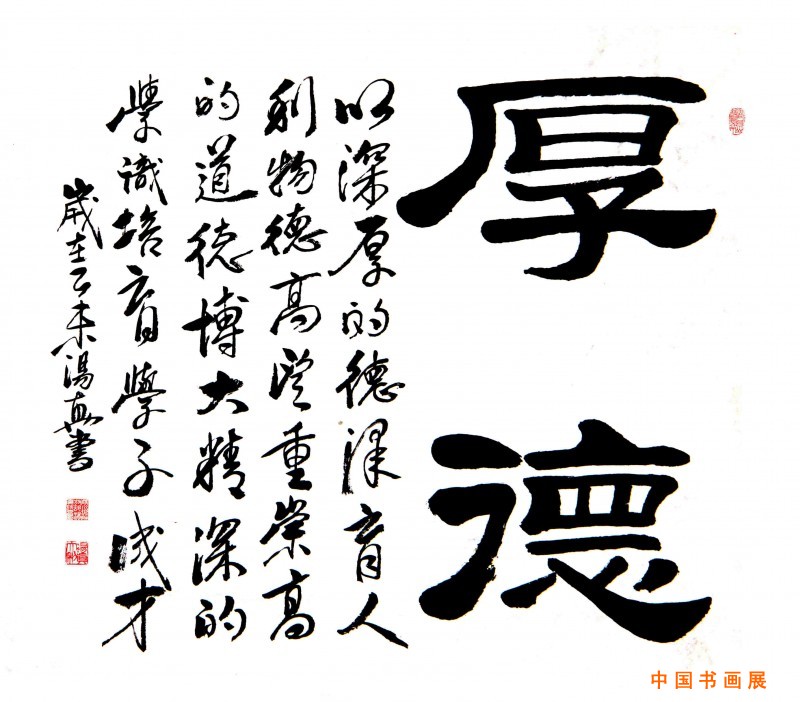 厚德
以深厚的德泽育人
利物德高望重崇高
的道德博大精深的
学识培育学子成才
岁在乙未汤真书
中国书画展